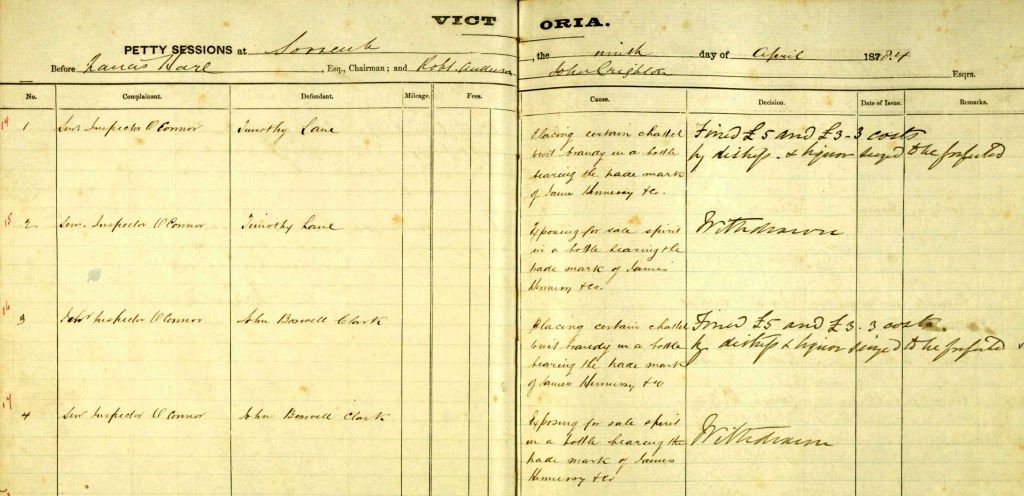 VICTORIA.
PETTY SESSIONS at Sorrento, the ninth day of April 18784
Before Francis Hare, Esq., Chairman; and Robt Anderson John Crighton Esqrs.
No. Complainant. Defendant. Mileage. Fees. Cause. Decision. Date of Issue. Remarks.
14 1 Senr Inspector O'Connor Timothy Lane Placing certain chattel Fined £5 and £3-3 costs
to wit brandy in a bottle by distress & liquor seized to be forfeited
bearing the trade mark
of James Hennessy & Co.
15 2 Senr Inspector O'Connor Timothy Lane Exposing for sale spirit Withdrawn
in a bottle bearing the
trade mark of James
Hennessy & Co.
16 3 Senr Inspector O'Connor John Boswell Clark Placing certain chattel Fined £5 and £3-3 costs.
to wit brandy in a bottle by distress & liquor seized to be forfeited
bearing the trade mark
of James Hennessy & Co
17 4 Senr Inspector O'Connor John Boswell Clark Exposing for sale spirit Withdrawn
in a bottle bearing the
trade mark of James
Hennessy & Co